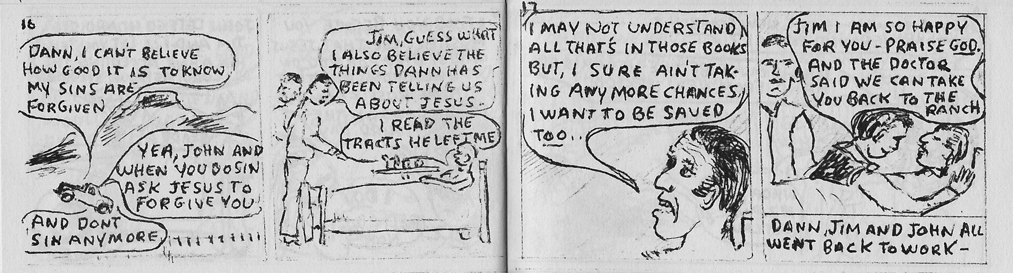 16
DANN, I CAN'T BELIEVE
HOW GOOD IT IS TO KNOW
MY SINS ARE
FORGIVEN
YEA, JOHN AND
WHEN YOU DO SIN
ASK JESUS TO
FORGIVE YOU
AND DONT
SIN ANYMORE
JIM, GUESS WHAT
I ALSO BELIEVE THE
THINGS DANN HAS
BEEN TELLING US
ABOUT JESUS.
I READ THE
TRACTS HE LEFT ME
17
I MAY NOT UNDERSTAND
ALL THAT'S IN THOSE BOOKS
BUT, I SURE AIN'T TAK-
ING ANY MORE CHANCES,
I WANT TO BE SAVED
TOO..
JIM I AM SO HAPPY
FOR YOU - PRAISE GOD.
AND THE DOCTOR
SAID WE CAN TAKE
YOU BACK TO THE
RANCH
DANN, JIM AND JOHN ALL
WENT BACK TO WORK -